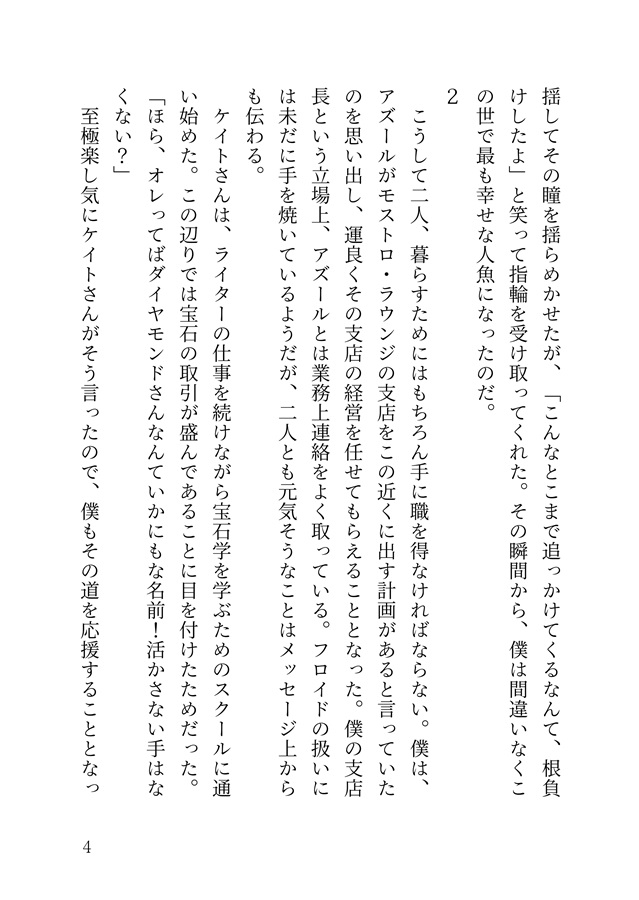 揺してその瞳を揺らめかせたが、「こんなとこまで追っかけてくるなんて、根負
けしたよ」と笑って指輪を受け取ってくれた。その瞬間から、僕は間違いなくこ
の世で最も幸せな人魚になったのだ。
2
こうして二人、暮らすためにはもちろん手に職を得なければならない。僕は、
アズールがモストロ・ラウンジの支店をこの近くに出す計画があると言っていた
のを思い出し、運良くその支店の経営を任せてもらえることとなった。僕の支店
長という立場上、アズールとは業務上連絡をよく取っている。フロイドの扱いに
は未だに手を焼いているようだが、二人とも元気そうなことはメッセージ上から
も伝わる。
ケイトさんは、ライターの仕事を続けながら宝石学を学ぶためのスクールに通
い始めた。この辺りでは宝石の取引が盛んであることに目を付けたためだった。
「ほら、オレってばダイヤモンドさんなんていかにもな名前！活かさない手はな
くない？」
至極楽し気にケイトさんがそう言ったので、僕もその道を応援することとなっ
4